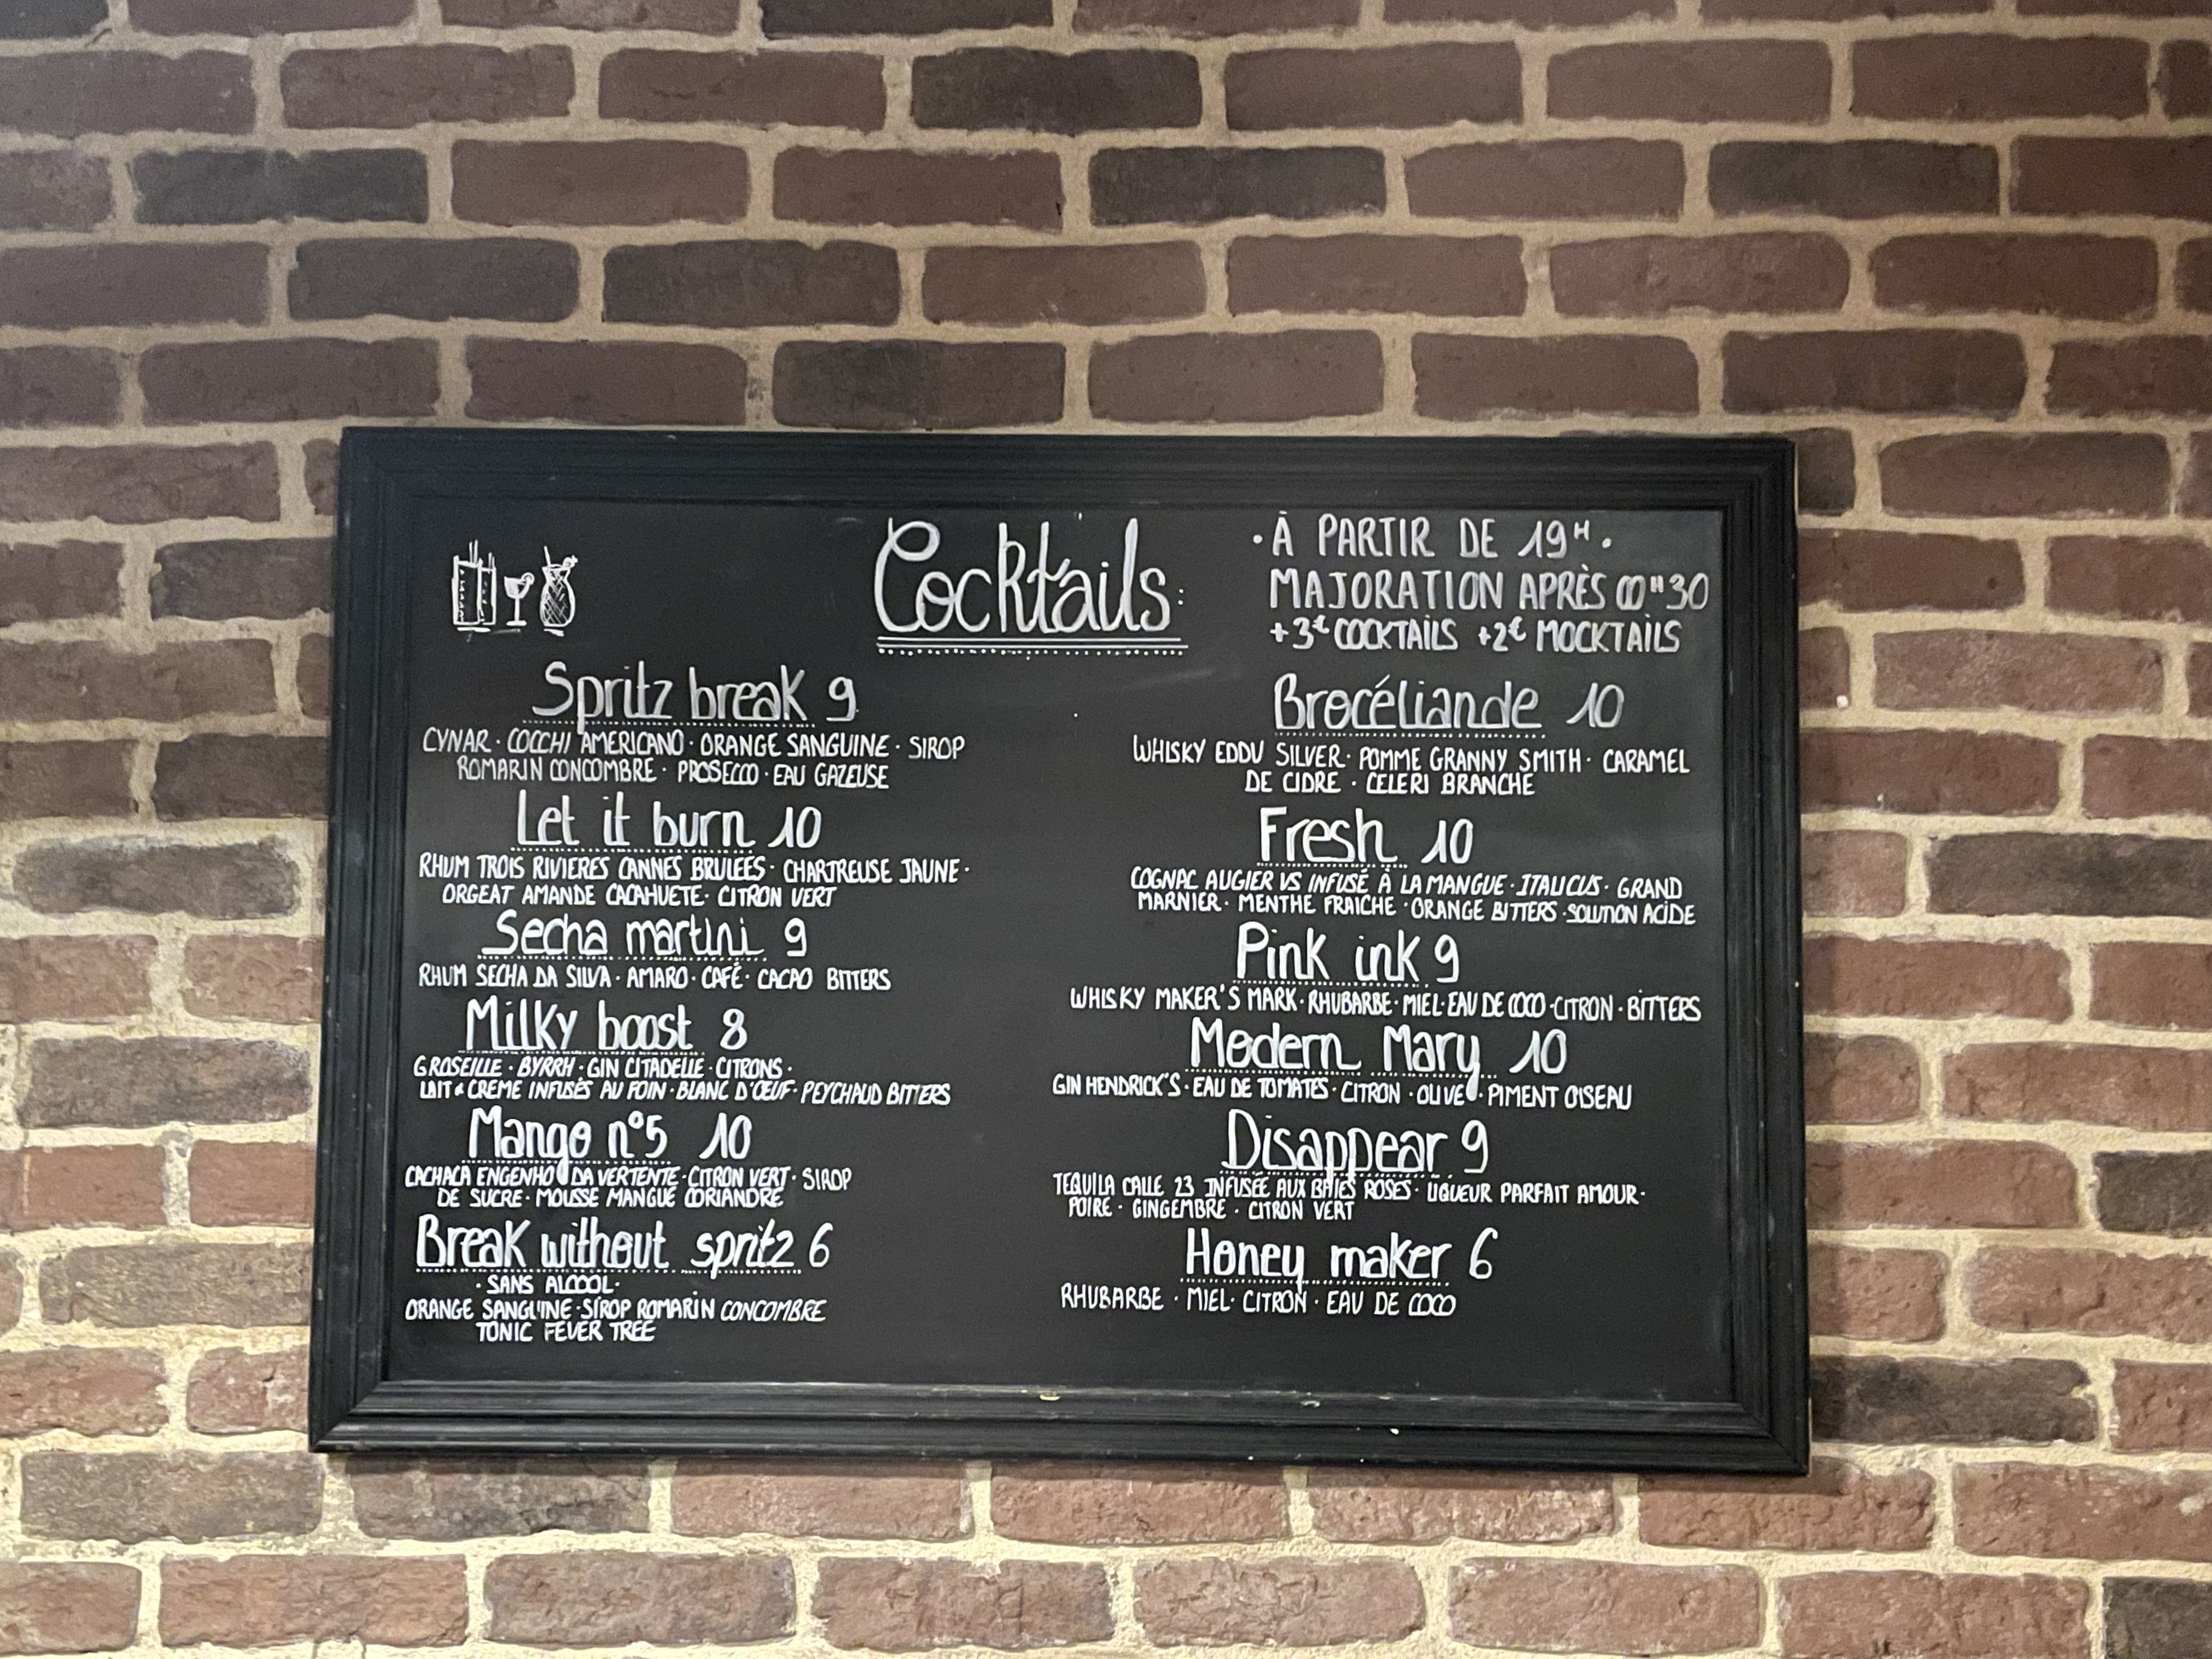 Cocktails:
· À PARTIR DE 19H ·
MAJORATION APRÈS 00H30
+3€ COCKTAILS +2€ MOCKTAILS
Spritz break 9
CYNAR · COCCHI AMERICANO · ORANGE SANGUINE · SIROP
ROMARIN CONCOMBRE · PROSECCO · EAU GAZEUSE
Let it burn 10
RHUM TROIS RIVIERES CANNES BRULEES · CHARTREUSE JAUNE ·
ORGEAT AMANDE CACAHUETE · CITRON VERT
Secha martini 9
RHUM SECHA DA SILVA · AMARO · CAFÉ · CACAO BITTERS
Milky boost 8
GROSEILLE · BYRRH · GIN CITADELLE · CITRONS ·
LAIT & CREME INFUSÉS AU FOIN · BLANC D'ŒUF · PEYCHAUD BITTERS
Mango n°5 10
CACHACA ENGENHO DA VERTENTE · CITRON VERT · SIROP
DE SUCRE · MOUSSE MANGUE CORIANDRE
Break without spritz 6
· SANS ALCOOL ·
ORANGE SANGUINE · SIROP ROMARIN CONCOMBRE
TONIC FEVER TREE
Brocéliande 10
WHISKY EDDU SILVER · POMME GRANNY SMITH · CARAMEL
DE CIDRE · CELERI BRANCHE
Fresh 10
COGNAC AUGIER VS INFUSÉ À LA MANGUE · ITALICUS · GRAND
MARNIER · MENTHE FRAICHE · ORANGE BITTERS · SOLUTION ACIDE
Pink ink 9
WHISKY MAKER'S MARK · RHUBARBE · MIEL · EAU DE COCO · CITRON · BITTERS
Modern Mary 10
GIN HENDRICK'S · EAU DE TOMATES · CITRON · OLIVE · PIMENT OISEAU
Disappear 9
TEQUILA CALLE 23 INFUSÉE AUX BAIES ROSES · LIQUEUR PARFAIT AMOUR ·
POIRE · GINGEMBRE · CITRON VERT
Honey maker 6
RHUBARBE · MIEL · CITRON · EAU DE COCO